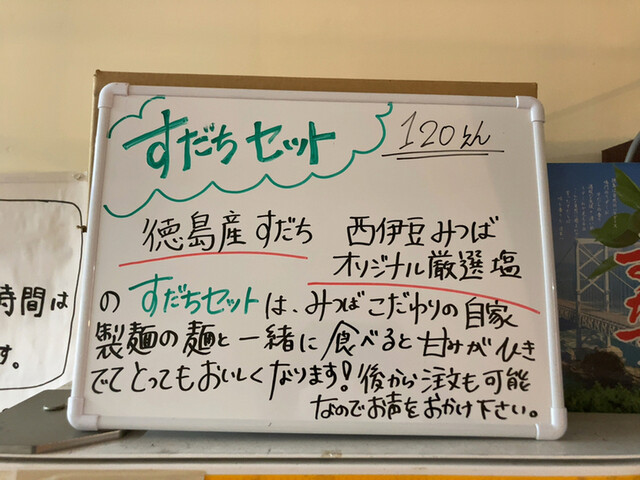 すだちセット 120えん
徳島産すだち 西伊豆みつば
オリジナル厳選塩
の すだちセットは、みつばこだわりの自家
製麺の麺と一緒に食べると甘みがひき
でてとってもおいしくなります!後から注文も可能
なのでお声をおかけ下さい。
時間は
す。